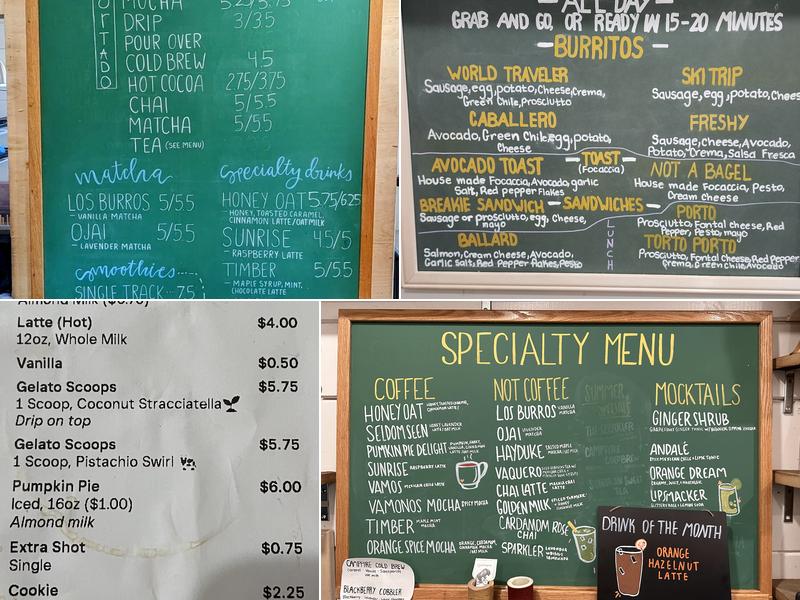 MOCHA 5.25/5.75
DRIP 3/3.5
POUR OVER
COLD BREW 4.5
HOT COCOA 2.75/3.75
CHAI 5/5.5
MATCHA 5/5.5
TEA (SEE MENU)
O
R
T
A
D
O
matcha
LOS BURROS 5/5.5
- VANILLA MATCHA
OJAI 5/5.5
- LAVENDER MATCHA
smoothies
SINGLE TRACK 7.5
specialty drinks
HONEY OAT 5.75/6.25
- HONEY, TOASTED CARAMEL,
CINNAMON LATTE/OATMILK
SUNRISE 4.5/5
- RASPBERRY LATTE
TIMBER 5/5.5
- MAPLE SYRUP, MINT,
CHOCOLATE LATTE
- ALL DAY -
GRAB AND GO, OR READY IN 15-20 MINUTES
- BURRITOS -
WORLD TRAVELER
Sausage, egg, potato, Cheese, Crema,
Green Chile, Prosciutto
SKI TRIP
Sausage, egg, potato, Cheese
CABALLERO
Avocado, Green Chile, egg, potato,
Cheese
FRESHY
Sausage, Cheese, Avocado,
Potato, Crema, Salsa Fresca
- TOAST -
(Focaccia)
AVOCADO TOAST
House made Focaccia, Avocado, garlic
Salt, Red pepper flakes
NOT A BAGEL
House made Focaccia, Pesto,
Cream Cheese
- SANDWICHES -
BREAKIE SANDWICH
Sausage or prosciutto, egg, Cheese,
mayo
PORTO
Prosciutto, Fontal cheese, Red
Pepper, Pesto, mayo
BALLARD
Salmon, Cream Cheese, Avocado,
Garlic Salt, Red Pepper flakes, Pesto
TORTO PORTO
Prosciutto, Fontal Cheese, Red Pepper,
Crema, Green Chile, Avocado
L
U
N
C
H
Almond Milk ($0.75)
Latte (Hot) $4.00
12oz, Whole Milk
Vanilla $0.50
Gelato Scoops $5.75
1 Scoop, Coconut Stracciatella
Drip on top
Gelato Scoops $5.75
1 Scoop, Pistachio Swirl
Pumpkin Pie $6.00
Iced, 16oz ($1.00)
Almond milk
Extra Shot $0.75
Single
Cookie $2.25
SPECIALTY MENU
COFFEE
HONEY OAT HONEY, TOASTED CARAMEL,
CINNAMON LATTE
SELDOM SEEN
PUMPKIN PIE DELIGHT
SUNRISE RASPBERRY LATTE
VAMOS MEXICAN CHILE LATTE
VAMONOS MOCHA SPICY MOCHA
TIMBER MAPLE MINT
MOCHA
ORANGE SPICE MOCHA
NOT COFFEE
LOS BURROS VANILLA
MATCHA
OJAI LAVENDER
MATCHA
HAYDUKE
VAQUERO
CHAI LATTE
GOLDEN MILK
CARDAMON ROSE
CHAI
SPARKLER
SUMMER
SPECIALS
MOCKTAILS
GINGER SHRUB
ANDALÉ
ORANGE DREAM
LIPSMACKER
DRINK OF THE MONTH
ORANGE
HAZELNUT
LATTE
CAMPFIRE COLD BREW
BLACKBERRY COBBLER